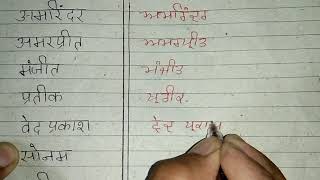 अमरिंदर ਅਮਰਿੰਦਰ
अमरप्रीत ਅਮਰਪ੍ਰੀਤ
मंजीत ਮੰਜੀਤ
प्रतीक ਪ੍ਰਤੀਕ
वेद प्रकाश ਵੇਦ
सोनम